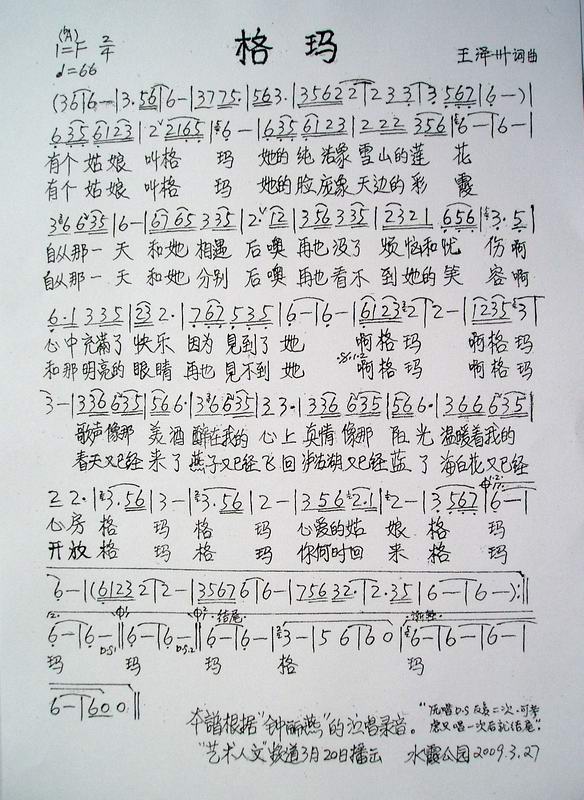 格 玛
1=F 2/4
王泽卅 词曲
♩=66
(36|6-|3.56|6-|3775.|563.|35622|2.33|3.567|6-)|
635 6123|2 2165|6-|635 6123|2.22 356|6-|6-|
有个 姑娘 叫格 玛 她的 纯洁象 雪山的莲 花
有个 姑娘 叫格 玛 她的 脸庞象 天边的 彩 霞
自从那一 天 和她 相遇 后噢 再也没了 烦恼和忧 伤啊
自从那一 天 和她 分别 后噢 再也看不 到她的笑 容啊
6.1 335|23 2.|762 535|6-|6-|6123 2|2-|1235 3|
心中充满了 快乐 因为 见到了 她 啊格玛 啊格玛
和那明亮的 眼睛 再也 见不到 她 啊格玛 啊格玛
3-|336 635|566.|36 635|23.|336 635|566.|366 635|
歌声像那 美酒 醉在我的 心上 真情 像那 阳光 温暖着我的
春天又已经 来了 燕子又已经飞回 泸沽湖又已经 蓝了 海白花又已经
22.|3.56|3-|3.56|2-|356 2.1|2-|3567|6-|
心房 格 玛 格 玛 心爱的姑 娘 格 玛
开放 格 玛 格 玛 你何时回 来 格 玛
6-|(6123 2|2-|3567 6|6-|7563 2.|2.35|6-|6-):||
结尾
6-|6-||6-|6-||6-|6-|3-|5 6|6 0|6-|6-|6-|
D.S.1 D.S.2
玛 玛 玛 格 玛
6-|600||
本谱根据"钟丽燕"的演唱录音。
"艺术人文"频道3月20日播出 水霞公园2009.3.27